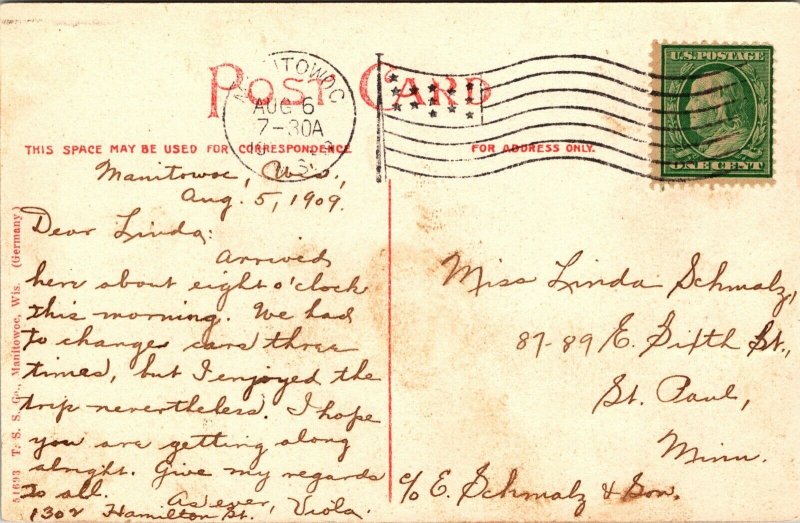 POST CARD
MANITOWOC
AUG 6
7-30A
U.S. POSTAGE
ONE CENT
THIS SPACE MAY BE USED FOR CORRESPONDENCE
FOR ADDRESS ONLY.
Manitowoc, Wis.,
Aug. 5, 1909.
Dear Linda:
Arrived
here about eight o'clock
this morning. We had
to change cars three
times, but I enjoyed the
trip nevertheless. I hope
you are getting along
alright. Give my regards
to all.
As ever, Viola.
1302 Hamilton St.
Miss Linda Schmalz,
87-89 E. Sixth St.,
St. Paul,
Minn.
c/o E. Schmalz & Son.
51693 T. S. S. Co., Manitowoc, Wis. (Germany)